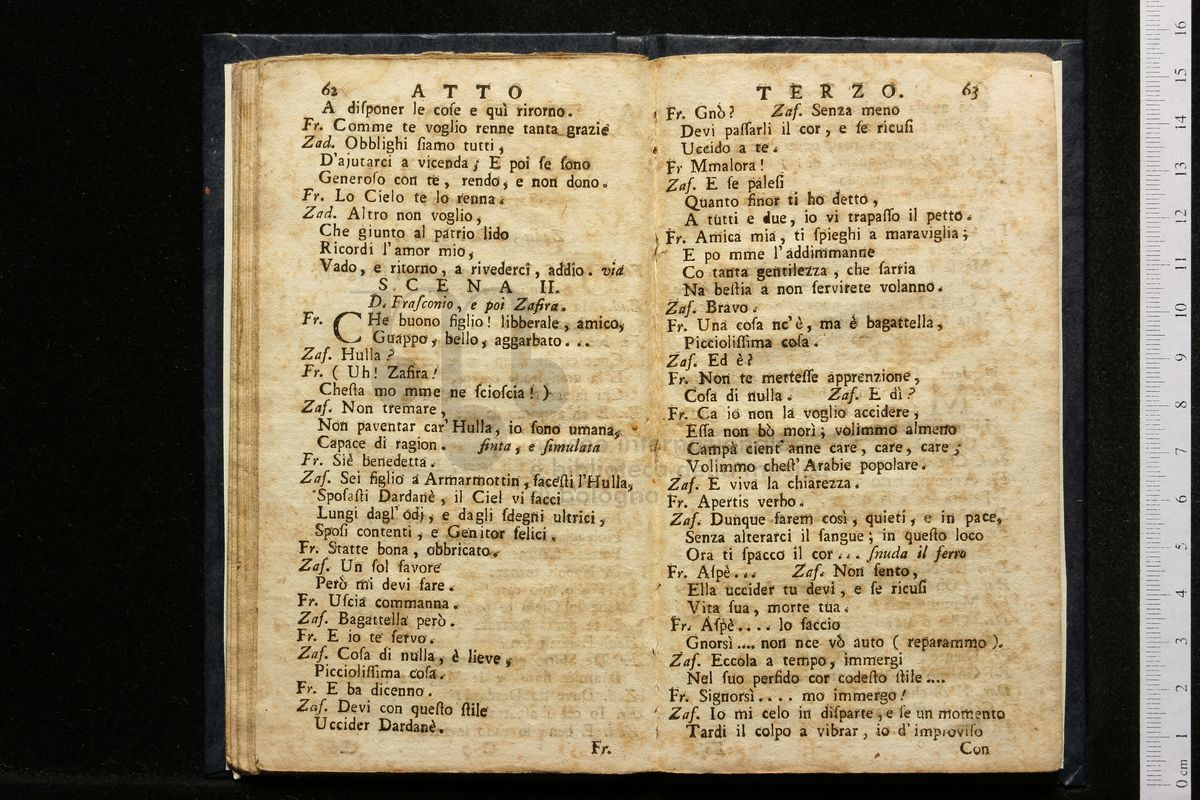 62 ATTO
A diſponer le coſe e quì rirorno.
Fr. Comme te voglio renne tanta grazie
Zad. Obblighi ſiamo tutti,
D'ajutarci a vicenda; E poi ſe ſono
Generoſo con te, rendo, e non dono.
Fr. Lo Cielo te lo renna.
Zad. Altro non voglio,
Che giunto al patrio lido
Ricordi l'amor mio,
Vado, e ritorno, a rivederci, addio. via
SCENA II.
D. Fraſconio, e poi Zafira.
Fr. CHe buono figlio! libberale, amico,
Guappo, bello, aggarbato...
Zaf. Hulla?
Fr. (Uh! Zafira!
Cheſta mo mme ne ſcioſcia!)
Zaf. Non tremare,
Non paventar car' Hulla, io ſono umana,
Capace di ragion. finta, e ſimulata
Fr. Siè benedetta.
Zaf. Sei figlio a Armarmottin, faceſti l'Hulla,
Spoſaſti Dardanè, il Ciel vi facci
Lungi dagl' odj, e dagli ſdegni ultrici,
Spoſi contenti, e Genitor felici.
Fr. Statte bona, obbricato.
Zaf. Un ſol favore
Però mi devi fare.
Fr. Uſcia commanna.
Zaf. Bagattella però.
Fr. E io te ſervo.
Zaf. Coſa di nulla, è lieve,
Piccioliſſima coſa.
Fr. E ba dicenno.
Zaf. Devi con queſto ſtile
Uccider Dardanè.
Fr.
TERZO. 63
Fr. Gnò? Zaf. Senza meno
Devi paſſarli il cor, e ſe ricuſi
Uccido a te.
Fr Mmalora!
Zaf. E ſe paleſi
Quanto finor ti ho detto,
A tutti e due, io vi trapaſſo il petto.
Fr. Amica mia, ti ſpieghi a maraviglia;
E po mme l'addimmanne
Co tanta gentilezza, che ſarria
Na beſtia a non ſervirete volanno.
Zaf. Bravo.
Fr. Una coſa nc'è, ma è bagattella,
Piccioliſſima coſa.
Zaf. Ed è?
Fr. Non te metteſſe apprenzione,
Coſa di nulla. Zaf. E dì?
Fr. Ca io non la voglio accidere,
Eſſa non bò morì; volimmo almeno
Campà cient' anne care, care, care;
Volimmo cheſt' Arabie popolare.
Zaf. E viva la chiarezza.
Fr. Apertis verbo.
Zaf. Dunque farem così, quieti, e in pace,
Senza alterarci il ſangue; in queſto loco
Ora ti ſpacco il cor... ſnuda il ferro
Fr. Aſpè... Zaf. Non ſento,
Ella uccider tu devi, e ſe ricuſi
Vita ſua, morte tua.
Fr. Aſpè.... lo faccio
Gnorsì.... non nce vò auto (reparammo).
Zaf. Eccola a tempo, immergi
Nel ſuo perfido cor codeſto ſtile....
Fr. Signorsì.... mo immergo!
Zaf. Io mi celo in diſparte, e ſe un momento
Tardi il colpo a vibrar, io d'improviſo
Con